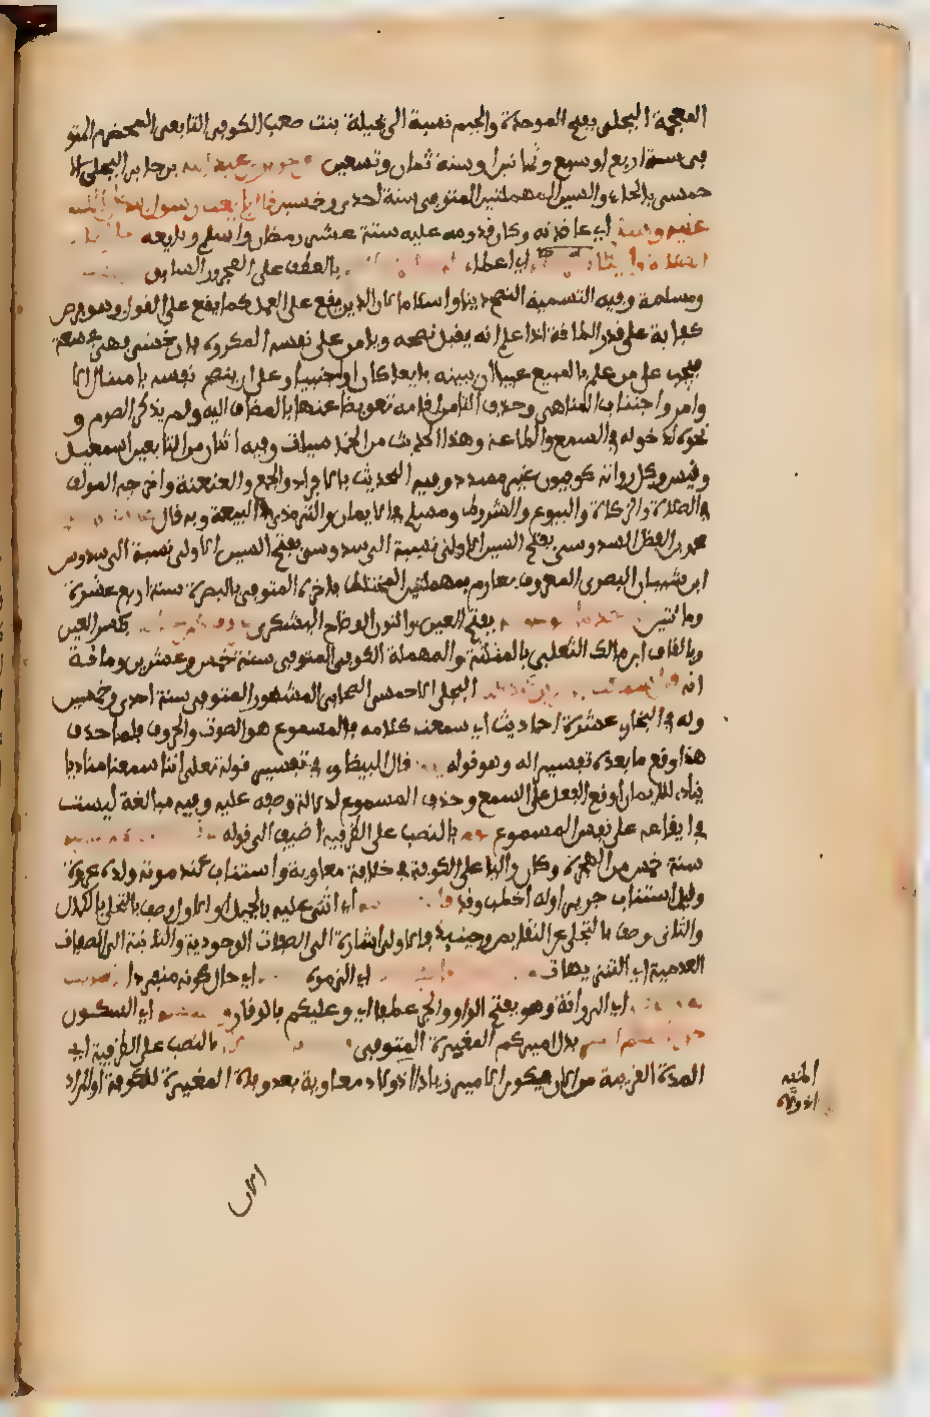 المعجمة البجلي بفتح الموحدة والجيم نسبة الى بجيلة بنت صعب الكوفي التابعي المخضرم المتو
فى سنة اربع او سبع وثمانين او سنة ثمان وتسعين عن جرير بن عبد الله بن جابر البجلي الا
حمسي بالحاء والسين المهملتين المتوفى سنة احدى وخمسين قال بايعت رسول الله صلى الله
عليه وسلم اي عاقدته وكان قدومه عليه سنة عشر في رمضان واسلم وبايعه على اقام
الصلاة وايتاء اي اعطاء بالعطف على المجرور السابق
ومسلمة وفيه التسمية النصح دينا واسلاما لان الدين يقع على العمل كما يقع على القول وهو فرض
كفاية على قدر الطاقة اذا علم انه يقبل نصحه ويامن على نفسه المكروه فان خشي فهو في سعة
فيجب على من علم بالمبيع عيبا ان يبينه بايعا كان او اجنبيا وعلى ان ينصح نفسه بامتثال الا
وامر واجتناب المناهي وحذف التا من اقامة تعويضا عنها بالمضاف اليه ولم يذكر الصوم و
نحوه لدخوله في السمع والطاعة وهذا الحديث من الخماسيات وفيه اثنان من التابعين اسمعيل
وقيس وكل رواته كوفيون غير مسدد وفيه التحديث بالافراد والجمع والعنعنة واخرجه المولف
في الصلاة والزكاة والبيوع والشروط ومسلم في الايمان والترمذي في البيعة وبه قال
محمد بن الفضل السدوسي بفتح السين الاولى نسبة الى سدوس
ابن شيبان البصري المعروف بعارم بمهملتين المختلط باخرة المتوفى بالبصرة سنة اربع عشرة
ومائتين بفتح العين والنون الوضاح اليشكري بكسر العين
وبالقاف ابن مالك الثعلبي بالمثلثة والمهملة الكوفي المتوفى سنة خمس وعشرين ومائة
انه قال سمعت البجلي الاحمسي الصحابي المشهور المتوفى سنة احدى وخمسين
وله في البخاري عشرة احاديث اي سمعت كلامه فالمسموع هو الصوت والحروف فلما حذف
هذا وقع ما بعده تفسيرا له وهو قوله قال البيضاوي في تفسير قوله تعلى اننا سمعنا مناديا
ينادي للايمان اوقع الفعل على السمع وحذف المسموع لدلالة وصفه عليه وفيه مبالغة ليست
في ايقاعه على نفس المسموع بالنصب على الظرفية اضيف الى قوله
سنة خمس من الهجرة وكان واليا على الكوفة في خلافة معاوية واستناب عند موته ولده عروة
وقيل استناب جريرا وله اخطب وقد اي اثنى عليه بالجميل او الاول وصف بالتحلي بالكمال
والثاني وصف بالتخلي عن النقايص وحينئذ فالاولى اشارة الى الصفات الوجودية والثانية الى الصفات
العدمية اي التنزيهات اي الزموه اي حال كونه منفردا
اي الرزانة وهو بفتح الواو والجر عطفا اي وعليكم بالوقار اي السكون
بدل اميركم المغيرة المتوفى بالنصب على الظرفية اي
المدة القريبة من الان فيكون الامير زيادا اذ ولاه معاوية بعد وفاة المغيرة للكوفة او المراد
الان